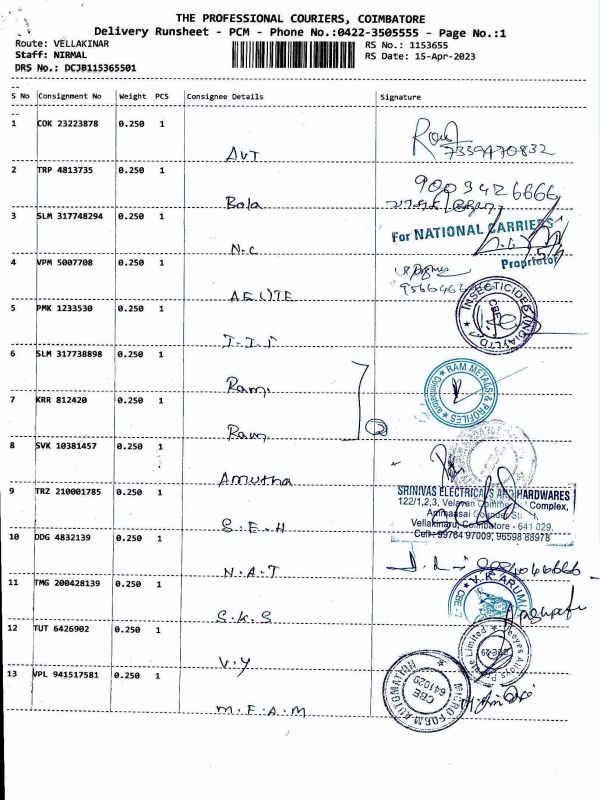 THE PROFESSIONAL COURIERS, COIMBATORE
Delivery Runsheet - PCM - Phone No.:0422-3505555 - Page No.:1
Route: VELLAKINAR
RS No.: 1153655
Staff: NIRMAL
RS Date: 15-Apr-2023
DRS No.: DCJB115365501
S No Consignment No Weight PCS Consignee Details Signature
1 COK 23223878 0.250 1
7339470832
AVT
2 TRP 4813735 0.250 1
9003426666
Bala
3 SLM 317748294 0.250 1
For NATIONAL CARRIERS
N.C
Proprietor
4 VPM 5007708 0.250 1
5 PMK 1233530 0.250 1
INSECTICIDES (INDIA) LTD
CBE
I.I.I
6 SLM 317738898 0.250 1
RAM METALS & PROFILES
Ram
7 KRR 812420 0.250 1
Ram
2
8 SVK 10381457 0.250 1
Amutha
9 TRZ 210001785 0.250 1
SRINIVAS ELECTRICALS AND HARDWARES
122/1,2,3, Velavan Complex,
Vellakinaru, Coimbatore - 641 029.
Cell: 99764 97009, 96598 88978
S.E.H
10 DDG 4832139 0.250 1
N.A.T
11 TMG 200428139 0.250 1
V.K. ARUMU
S.K.S
12 TUT 6426902 0.250 1
CBE-29
V.Y
13 VPL 941517581 0.250 1
MICRO FORM AUTOMATION
CBE
641029
M.F.A.M